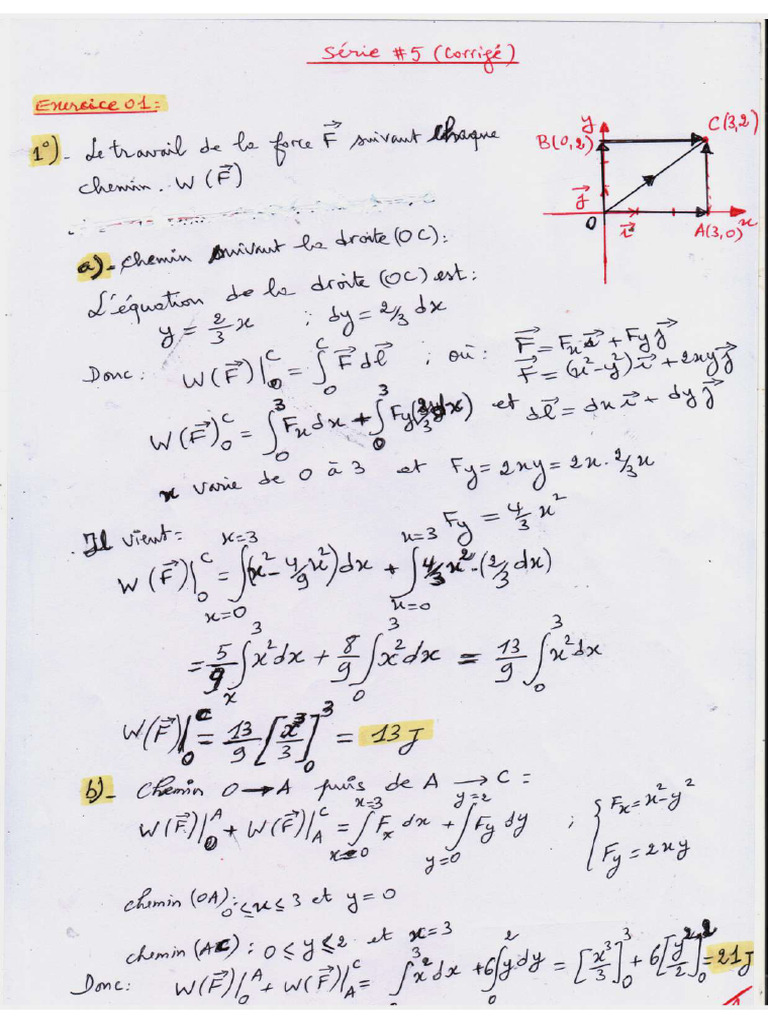 Série #5 (Corrigé)
Exercice 01:
1°)- Le travail de la force F⃗ suivant chaque
chemin. W(F⃗)
y
B(0,2)
C(3,2)
j⃗
O
i⃗
A(3,0)
x
a)- chemin suivant la droite (OC):
L'équation de la droite (OC) est:
y = 2/3 x ; dy = 2/3 dx
Donc: W(F⃗)|₀^C = ∫₀^C F⃗ dl⃗ ; où: F⃗ = Fx i⃗ + Fy j⃗
F⃗ = (x²-y²) i⃗ + 2xy j⃗
W(F⃗)₀^C = ∫₀³ Fx dx + ∫₀³ Fy (2/3 dx) et dl⃗ = dx i⃗ + dy j⃗
x varie de 0 à 3 et Fy = 2xy = 2x · 2/3 x
Fy = 4/3 x²
Il vient:
W(F⃗)|₀^C = ∫_{x=0}^{x=3} (x² - 4/9 x²) dx + ∫_{x=0}^{x=3} 4/3 x² · (2/3 dx)
= 5/9 ∫ₓ³ x² dx + 8/9 ∫₀³ x² dx = 13/9 ∫₀³ x² dx
W(F⃗)|₀^C = 13/9 [x³/3]₀³ = 13 J
b)- Chemin O → A puis de A → C :
W(F⃗)|₀^A + W(F⃗)|_A^C = ∫_{x=0}^{x=3} Fx dx + ∫_{y=0}^{y=2} Fy dy ; { Fx = x² - y²
Fy = 2xy
chemin (OA): 0 ≤ x ≤ 3 et y = 0
chemin (AC): 0 ≤ y ≤ 2 et x = 3
Donc: W(F⃗)|₀^A + W(F⃗)|_A^C = ∫₀³ x² dx + 6∫₀² y dy = [x³/3]₀³ + 6[y²/2]₀² = 21 J